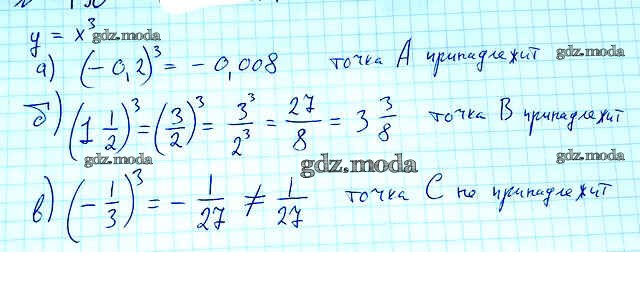 y = x³ gdz.moda
а) (-0,2)³ = -0,008 точка A принадлежит gdz.moda
б) (1 1/2)³ = (3/2)³ = 3³/2³ = 27/8 = 3 3/8 точка B принадлежит
gdz.moda gdz.moda gdz.moda
в) (-1/3)³ = -1/27 ≠ 1/27 точка C не принадлежит